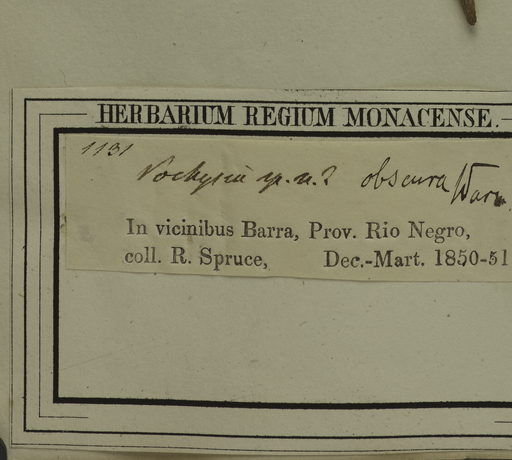 HERBARIUM REGIUM MONACENSE.
1131
Vochysia sp. n.? obscura Warm.
In vicinibus Barra, Prov. Rio Negro,
coll. R. Spruce, Dec.-Mart. 1850-51